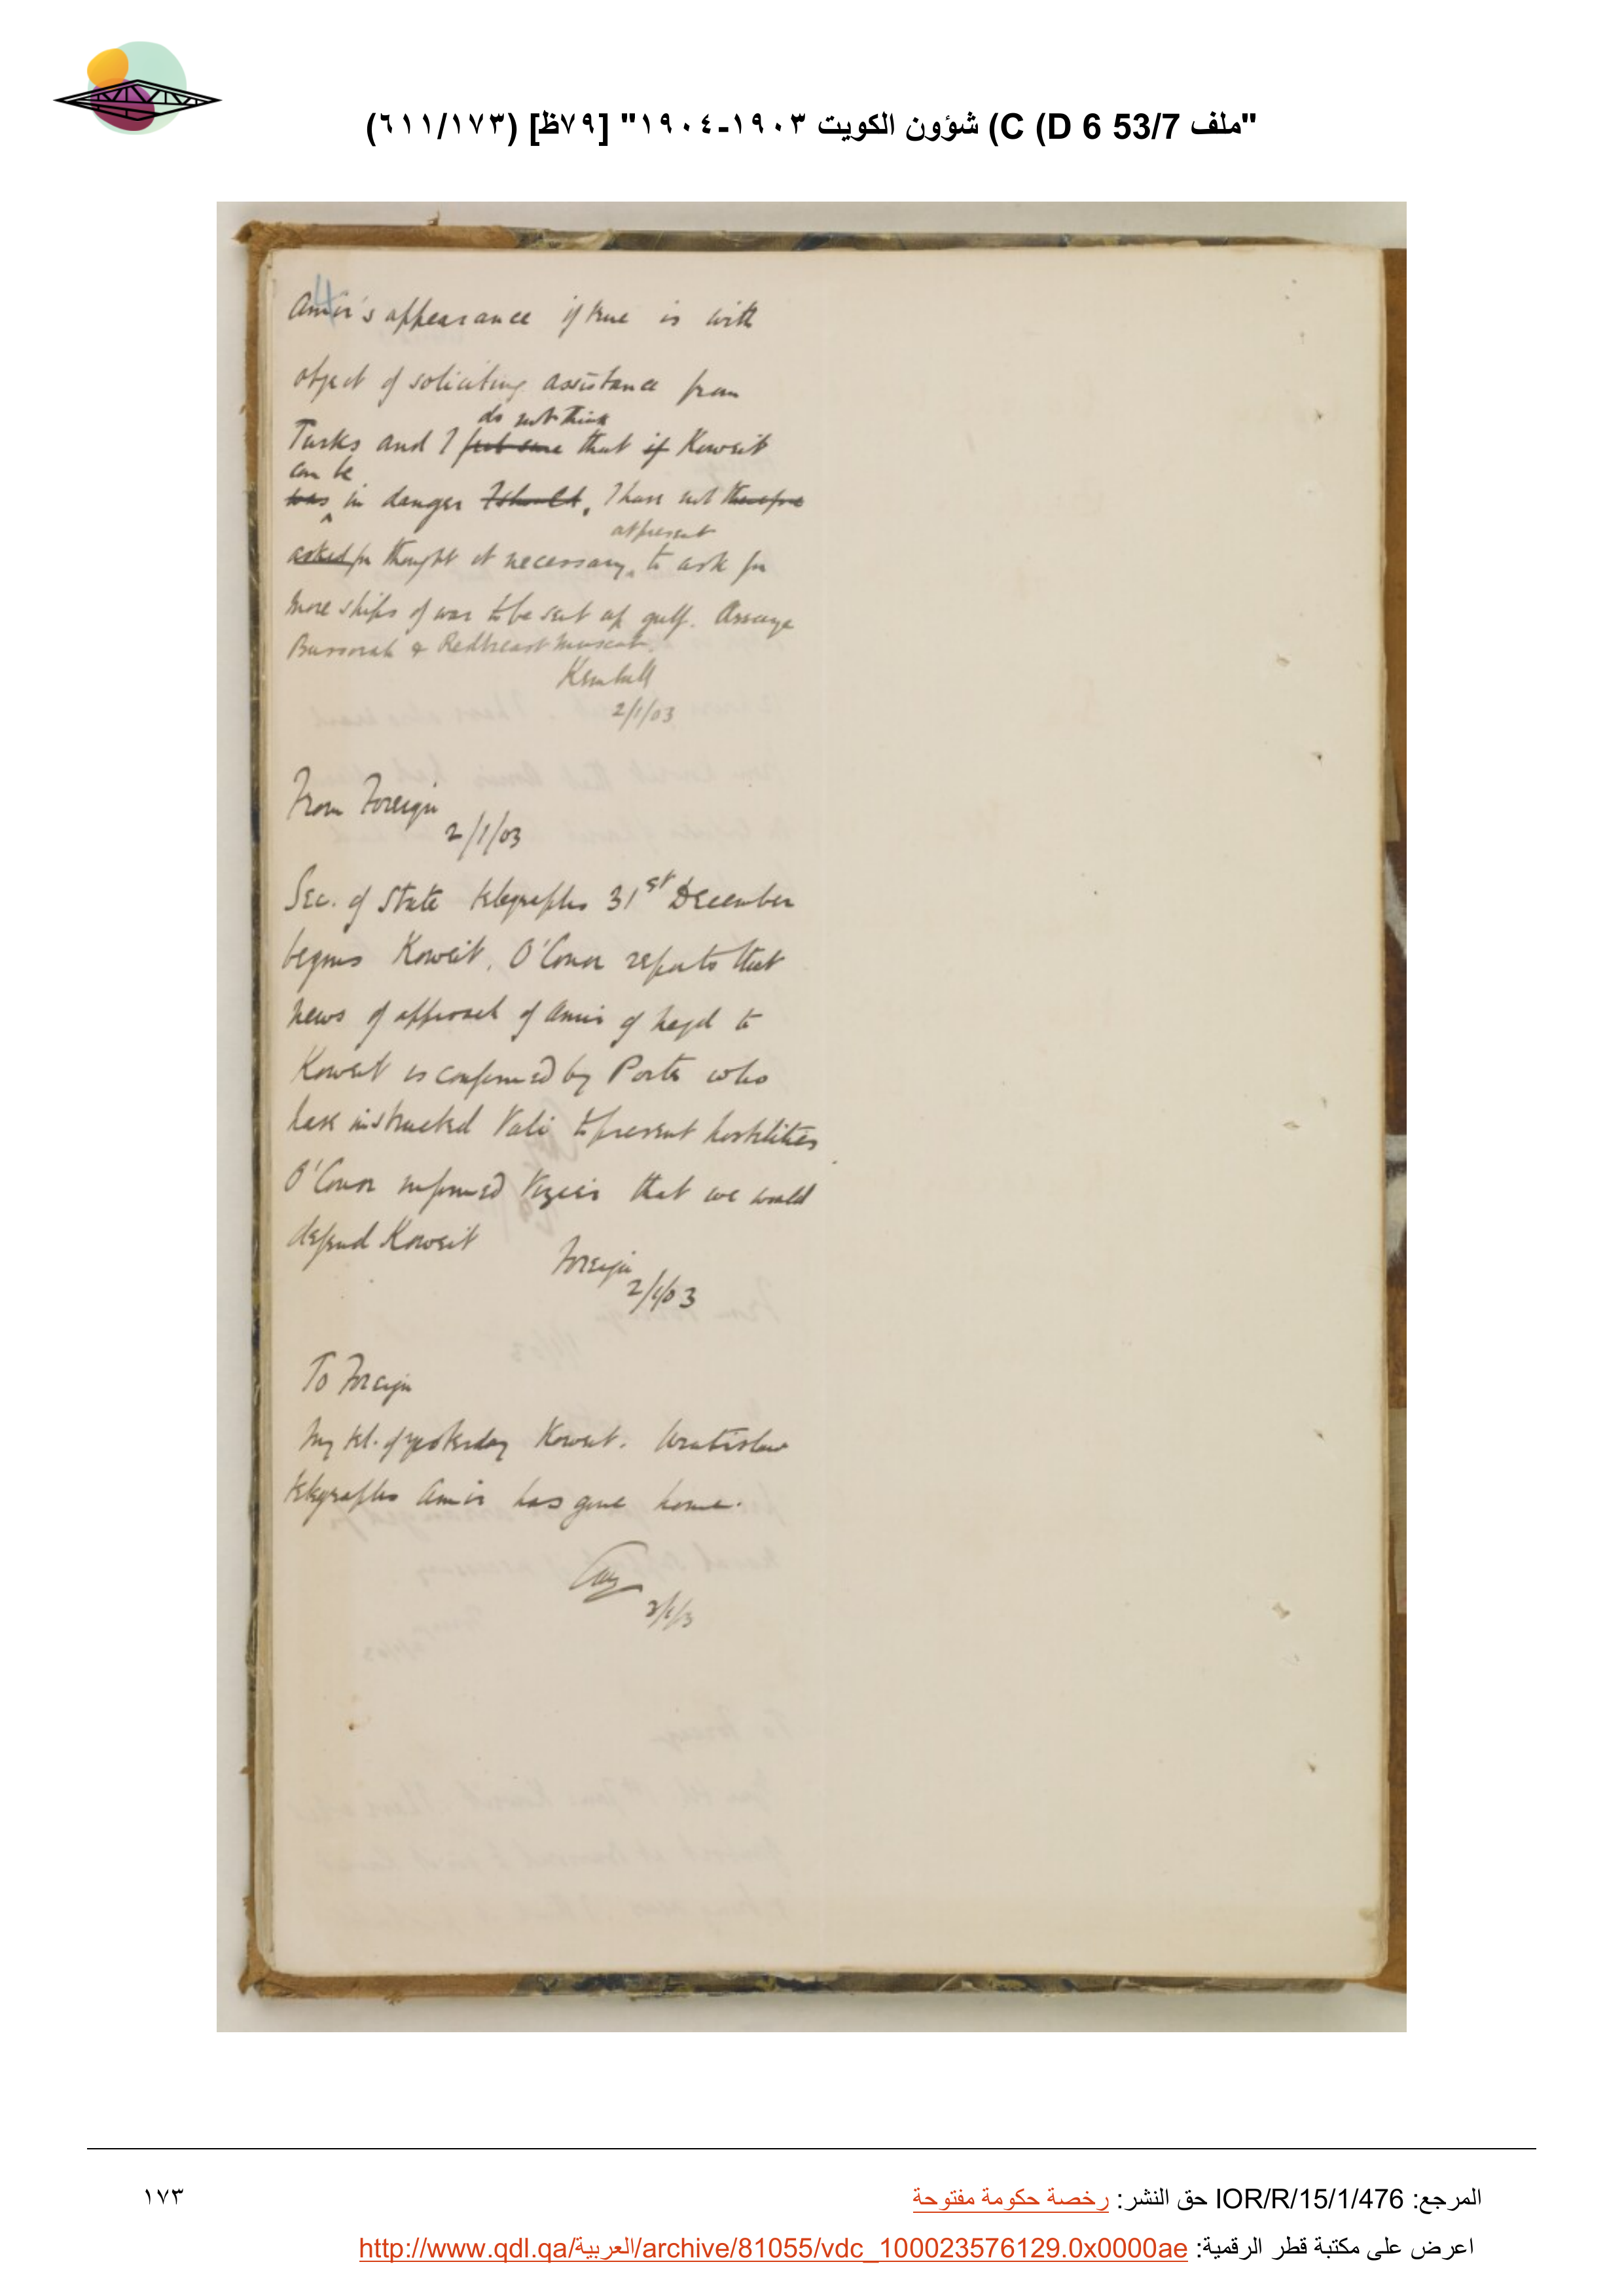 "ملف 53/7 D 6) C) شؤون الكويت ١٩٠٣-١٩٠٤" [٧٩ظ] (٦١١/١٧٣)
4
Amir's appearance if true is with
object of soliciting assistance from
do not think
Turks and I feel sure that if Koweit
can be
was in danger I should, I have not therefore
at present
asked for thought it necessary to ask for
more ships of war to be sent up gulf.
Bussorah & Redbreast Muscat.
Kemball
2/1/03
From Foreign
2/1/03
Sec. of State telegraphs 31st December
begins Koweit. O'Conor reports that
news of approach of Amir of Nejd to
Koweit is confirmed by Porte who
have instructed Vali to prevent hostilities
O'Conor informed Vizier that we would
defend Koweit
Foreign
2/1/03
To Foreign
My tel. of yesterday Koweit. Wratislaw
telegraphs Amir has gone home.
3/1/3
المرجع: IOR/R/15/1/476 حق النشر: رخصة حكومة مفتوحة
١٧٣
اعرض على مكتبة قطر الرقمية: http://www.qdl.qa/العربية/archive/81055/vdc_100023576129.0x0000ae